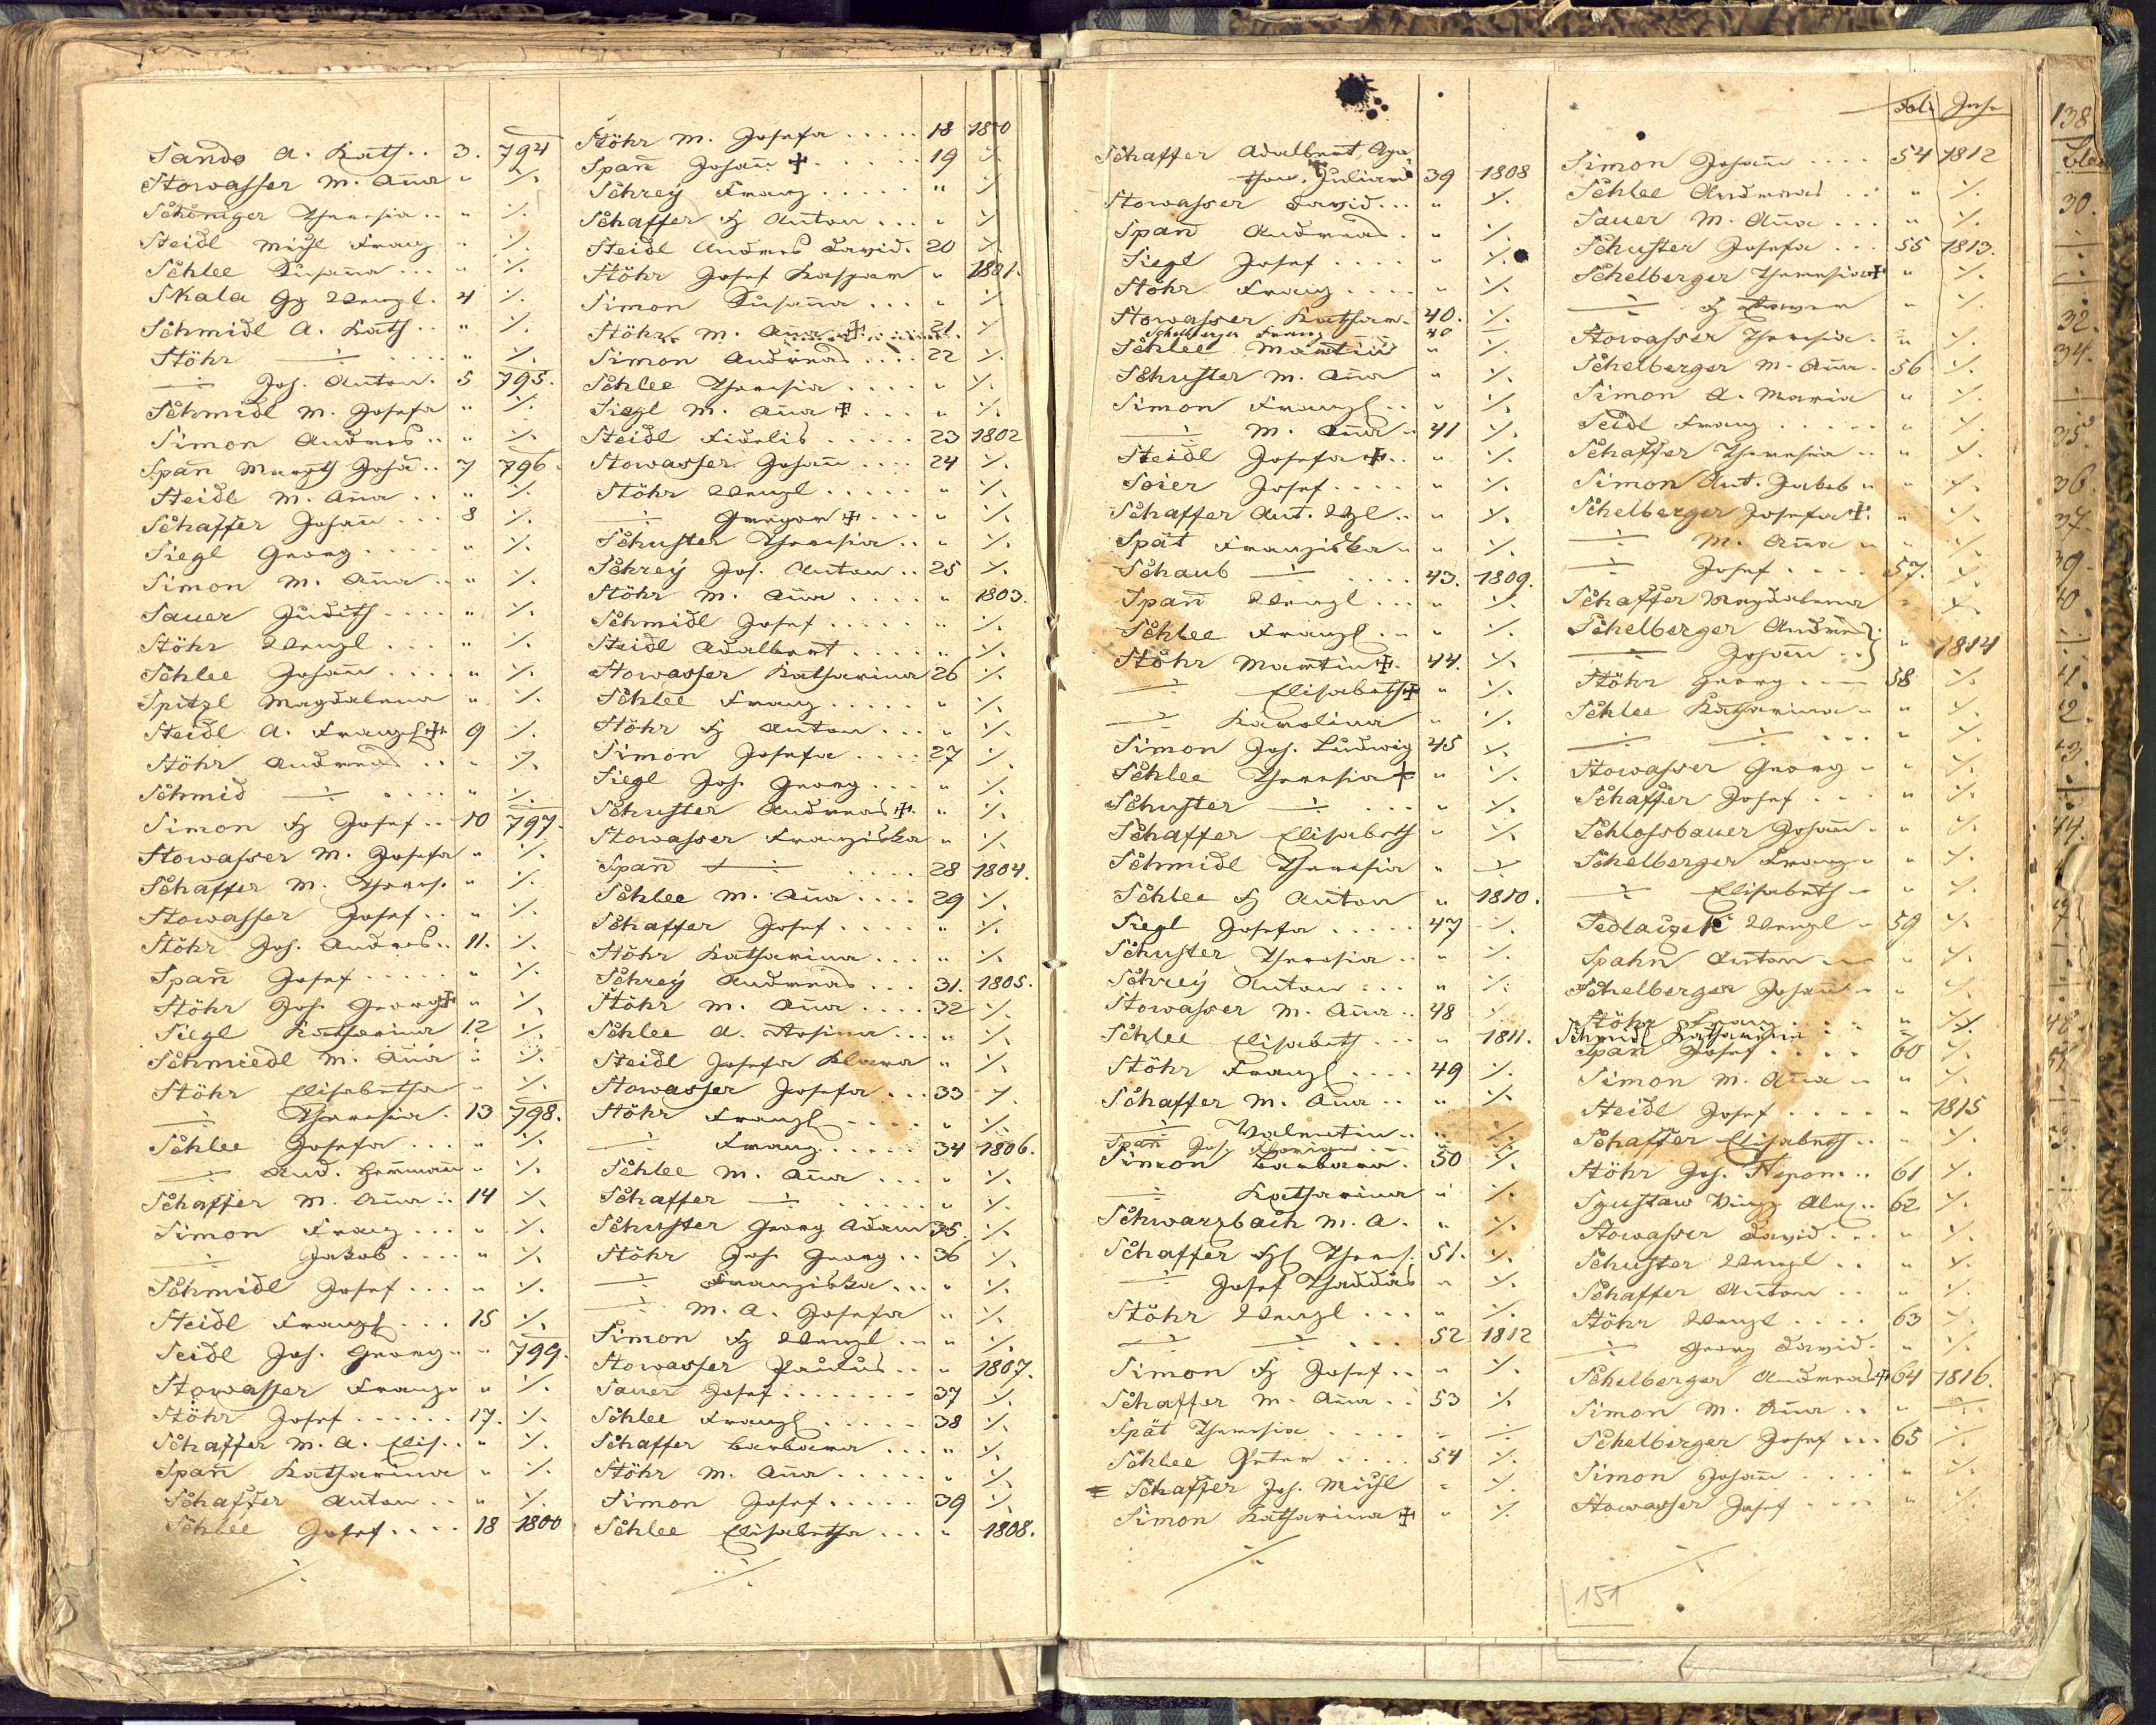 Sando A. Kath.. 3. 794
Stowasser M. Aña " ·/.
Schöniger Theresia.. " ·/.
Steidl Michl Franz " ·/.
Schlee Susaña... " ·/.
Skala Gg Wenzl. 4 ·/.
Schmidl A. Kath.. " ·/.
Stöhr —:— .... " ·/.
—:— Jos. Anton. 5 795.
Schmidl M. Josefa " ·/.
Simon Andres.. " ·/.
Spañ Margth Josefa.. 7 796.
Steidl M. Aña.. " ·/.
Schaffer Johañ... 8 ·/.
Siegl Georg.... " ·/.
Simon M. Aña.. " ·/.
Sauer Judith.... " ·/.
Stöhr Wenzl.... " ·/.
Schlee Johañ.... " ·/.
Spitzl Magdalena " ·/.
Steidl A. Franzl ✝. 9 ·/.
Stöhr Andreas.. " ·/.
Schmid —:— .... " ·/.
Simon Fz Josef.. 10 797.
Stowasser M. Josefa " ·/.
Schaffer M. Theres. " ·/.
Stowasser Josef.. " ·/.
Stöhr Jos. Andres.. 11. ·/.
Spañ Josef..... " ·/.
Stöhr Joh. Georg ✝ " ·/.
Siegl Katherina 12 ·/.
Schmiedl M. Aña " ·/.
Stöhr Elisabetha " ·/.
—:— Theresia. 13 798.
Schlee Josefa... " ·/.
—:— And. Hermañ " ·/.
Schaffer M. Aña.. 14 ·/.
Simon Franz... " ·/.
—:— Jakob.... " ·/.
Schmidl Josef... " ·/.
Steidl Franzl... 15 ·/.
Seidl Joh. Georg.. " 799.
Stowasser Franz. " ·/.
Stöhr Josef...... 17. ·/.
Schaffer M. A. Elis.. " ·/.
Spañ Katharina " ·/.
Schaffer Anton.. " ·/.
Schlee Josef.... 18 1800
·/.
Stöhr M. Josefa..... 18 1800
Spañ Johañ ✝...... 19 ·/.
Schrey Franz...... " ·/.
Schaffer Fz Anton... " ·/.
Steidl Andres David. 20 ·/.
Stöhr Josef Kaspar " 1801.
Simon Susaña... " ·/.
Stöhr M. Aña ✝..... 21. ·/.
Simon Andreas.... 22 ·/.
Schlee Theresia.... " ·/.
Siegl M. Aña ✝.... " ·/.
Steidl Fidelis..... 23 1802
Stowasser Johañ.... 24 ·/.
Stöhr Wenzl..... " ·/.
—:— Gregor ✝... " ·/.
Schuster Theresia.. " ·/.
Schrey Jos. Anton.. 25 ·/.
Stöhr M. Aña.... " 1803.
Schmidl Josef..... " ·/.
Steidl Adalbert.... " ·/.
Stowasser Katharina 26 ·/.
Schlee Franz..... " ·/.
Stöhr Fz Anton... " ·/.
Simon Josefa.... 27 ·/.
Siegl Joh. Georg... " ·/.
Schuster Andreas ✝. " ·/.
Stowasser Franziska " ·/.
Spañ —:— .... 28 1804.
Schlee M. Aña.... 29 ·/.
Schaffer Josef.... " ·/.
Stöhr Katharina... " ·/.
Schrey Andreas... 31. 1805.
Stöhr M. Aña.... 32 ·/.
Schlee A. Rosina... " ·/.
Steidl Josefa Klara " ·/.
Stowasser Josefa... 33 ·/.
Stöhr Franzl.... " ·/.
—:— Franz..... 34 1806.
Schlee M. Aña.... " ·/.
Schaffer —:— ..... " ·/.
Schuster Georg Adam 35. ·/.
Stöhr Joh Georg.. 36 ·/.
—:— Franziska... " ·/.
—:— M. A. Josefa " ·/.
Simon Fz Wenzl... " ·/.
Stowasser Paulus.. " 1807.
Sauer Josef....... 37 ·/.
Schlee Franzl..... 38 ·/.
Schaffer Barbara... " ·/.
Stöhr M. Aña..... " ·/.
Simon Josef..... 39 ·/.
Schlee Elisabetha... " 1808.
·/.
Schaffer Adalbert, Aga
thon, Julian 39 1808
Stowasser David... " ·/.
Spañ Andreas. " ·/.
Siegl Josef.... " ·/.
Stöhr Franz.... " ·/.
Stowasser Kathar. 40. ·/.
Schelberger Franz 40
Schlee Martin " ·/.
Schuster M. Aña " ·/.
Simon Franzl.. " ·/.
—:— M. Aña.. 41 ·/.
Steidl Josefa ✝.. " ·/.
Soier Josef.... " ·/.
Schaffer Ant. Wzl.. " ·/.
Spät Franziska.. " ·/.
Schaub —:— .... 43. 1809.
Spañ Wenzl... " ·/.
Schlee Franzl... " ·/.
Stöhr Martin ✝. 44. ·/.
—:— Elisabeth ✝ " ·/.
—:— Karolina " ·/.
Simon Jos. Ludwig 45 ·/.
Schlee Theresia ✝ " ·/.
Schuster —:— ... " ·/.
Schaffer Elisabeth " ·/.
Schmidl Theresia " ·/.
Schlee Fz Anton " 1810.
Siegl Josefa..... 47 ·/.
Schuster Theresia.. " ·/.
Schrey Anton... " ·/.
Stowasser M. Aña.. 48 ·/.
Schlee Elisabeth... " 1811.
Stöhr Franzl.... 49 ·/.
Schaffer M. Aña.. " ·/.
—:— Valentin.. " ·/.
Spañ Jos. Florian
Simon Barbara. 50 ·/.
—:— Katharina " ·/.
Schwarzbach M. A. " ·/.
Schaffer Fzl Theres. 51. ·/.
—:— Josef Thaddäs " ·/.
Stöhr Wenzl... " ·/.
—:— —:— ... 52 1812
Simon Fz Josef.. " ·/.
Schaffer M. Aña.. 53 ·/.
Spät Theresia.... " ·/.
Schlee Peter.... 54 ·/.
Schaffer Jos. Michl " ·/.
Simon Katharina ✝ " ·/.
·/.
Fol. Jahr
Simon Johañ.... 54 1812
Schlee Andreas.. " ·/.
Sauer M. Aña... " ·/.
Schuster Josefa... 55 1813.
Schelberger Theresia ✝ " ·/.
—:— Fz Xaver " ·/.
Stowasser Theresia. " ·/.
Schelberger M. Aña. 56 ·/.
Simon A. Maria " ·/.
Seidl Franz..... " ·/.
Schaffer Theresia.. " ·/.
Simon Ant. Jakob " ·/.
Schelberger Josefa ✝. " ·/.
—:— M. Aña " ·/.
—:— Josef.... 57. ·/.
Schaffer Magdalena " ·/.
Schelberger Andrea }
—:— Johañ.. } " 1814
Stöhr Georg... 58 ·/.
Schlee Katharina " ·/.
—:— —:— ... " ·/.
Stowasser Georg " ·/.
Schaffer Josef... " ·/.
Schlossbauer Johañ. " ·/.
Schelberger Franz " ·/.
—:— Elisabeth " ·/.
Sedlaczek Wenzl 59 ·/.
Spahn Anton " ·/.
Schelberger Johañ " ·/.
Stöhr Franz.... " ·/.
Schmidl Katharina
Spañ Josef.... 60 ·/.
Simon M. Aña " ·/.
Steidl Josef..... " 1815
Schaffer Elisabeth.. " ·/.
Stöhr Jos. Nepom... 61 ·/.
62. ·/.
Stowasser David... " ·/.
Schuster Wenzl.. " ·/.
Schaffer Anton.. " ·/.
Stöhr Wenzl.... 63 ·/.
—:— Georg David. " ·/.
Schelberger Andreas ✝ 64 1816.
Simon M. Aña.. " ·/.
Schelberger Josef... 65 ·/.
Simon Johañ.... " ·/.
Stowasser Josef.... " ·/.
·/.
151
138
30.
32.
34.
35.
36.
37.
39.
40